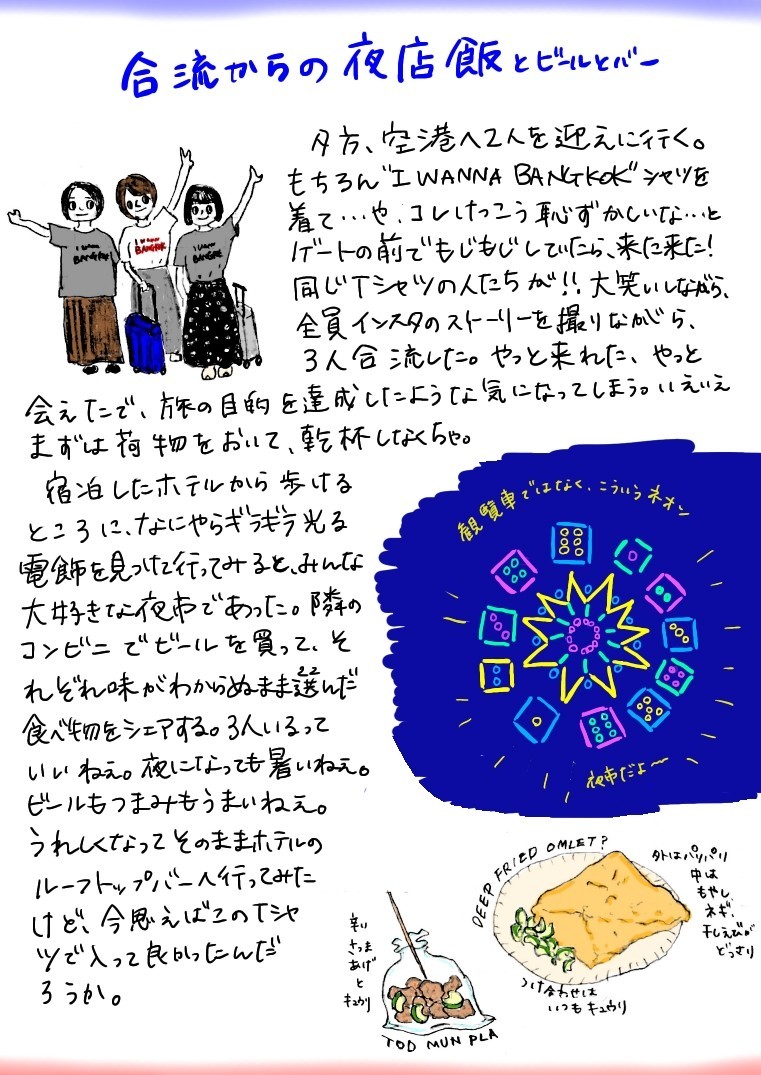 合流からの夜店飯とビールとバー
夕方、空港へ2人を迎えに行く。
もちろん"I WANNA BANGKOK"シャツを
着て…や、コレけっこう恥ずかしいな…と
ゲートの前でもじもじしていたら、来た来た!
同じTシャツの人たちが!!大笑いしながら、
全員インスタのストーリーを撮りながら、
3人合流した。やっと来れた、やっと
会えたで、旅の目的を達成したような気になってしまう。いえいえ
まずは荷物をおいて、乾杯しなくちゃ。
I WANNA
BANGKOK
I WANNA
BANGKOK
I WANNA
BANGKOK
宿泊したホテルから歩ける
ところに、なにやらギラギラ光る
電飾を見つけて行ってみると、みんな
大好きな夜市であった。隣の
コンビニでビールを買って、そ
れぞれ味がわからぬまま選んだ
食べ物をシェアする。3人いるって
いいねぇ。夜になっても暑いねぇ。
ビールもつまみもうまいねぇ。
うれしくなってそのままホテルの
ルーフトップバーへ行ってみた
けど、今思えばこのTシャ
ツで入って良かったんだ
ろうか。
観覧車ではなく、こういうネオン
夜市だよ〜
辛い
さつま
あげ
と
キュウリ
TOD MUN PLA
DEEP FRIED OMLET?
外はパリパリ
中は
もやし、
ネギ、
干しえびが
どっさり
つけ合わせは
いつもキュウリ